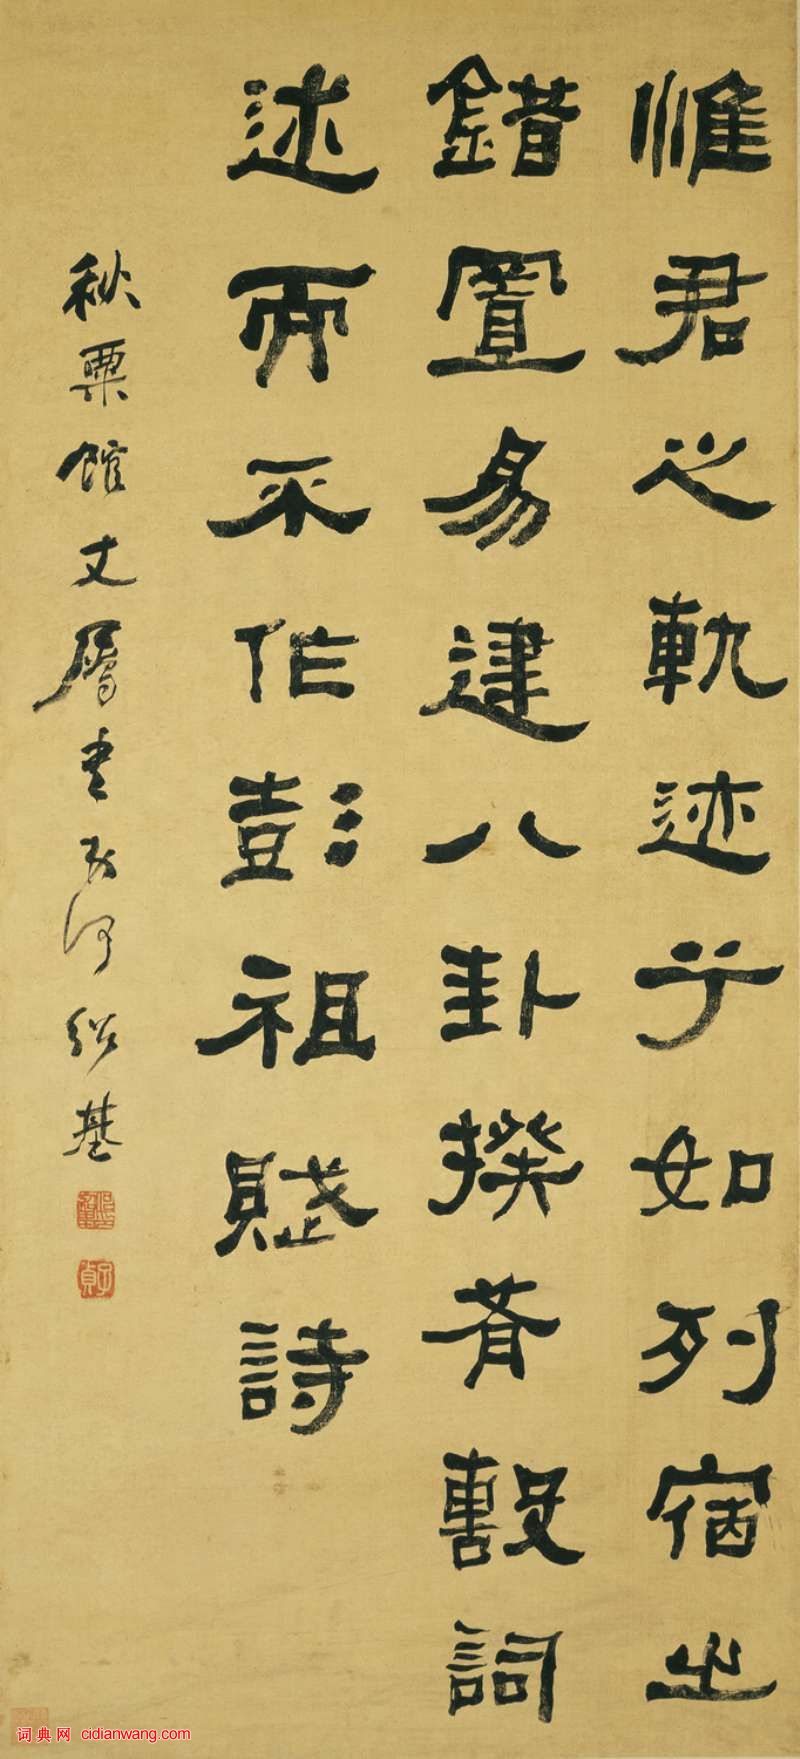 惟君之軌迹兮如列宿之
錯置易建八卦揆肴毄詞
述而不作彭祖賦詩
秋粟館丈屬書何紹基
子貞
词典网 cidianwang.com